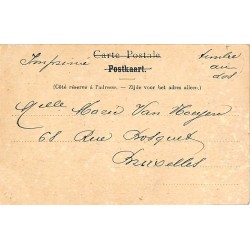 Carte Postale
Imprimé
timbre
au
dos
Postkaart.
(Côté réservé à l'adresse. — Zijde voor het adres alleen.)
Melle Marie Van
68 Rue Bosquet
Bruxelles